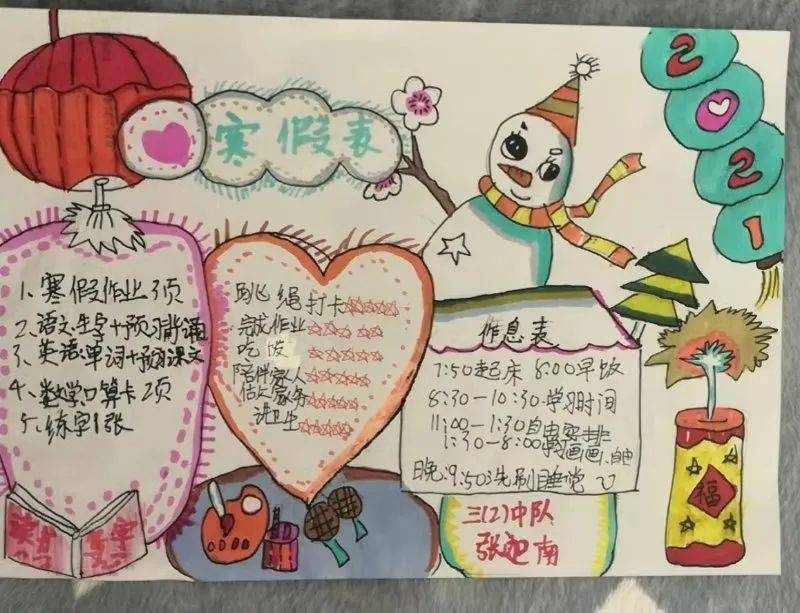 寒假表
2021
1、寒假作业3页
2、语文:生字+预习背诵
3、英语:单词+预习课文
4、数学口算卡2页
5、练字1张
跳绳打卡☆☆☆☆☆
完成作业☆☆☆☆☆
吃饭☆☆☆☆☆
陪伴家人☆☆☆☆☆
做家务☆☆☆☆☆
讲卫生☆☆☆☆☆
作息表
7:50起床 8:00早饭
8:30-10:30学习时间
11:00-1:30自由安排
1:30-8:00
晚:9:50洗刷睡觉
福
三(2)中队